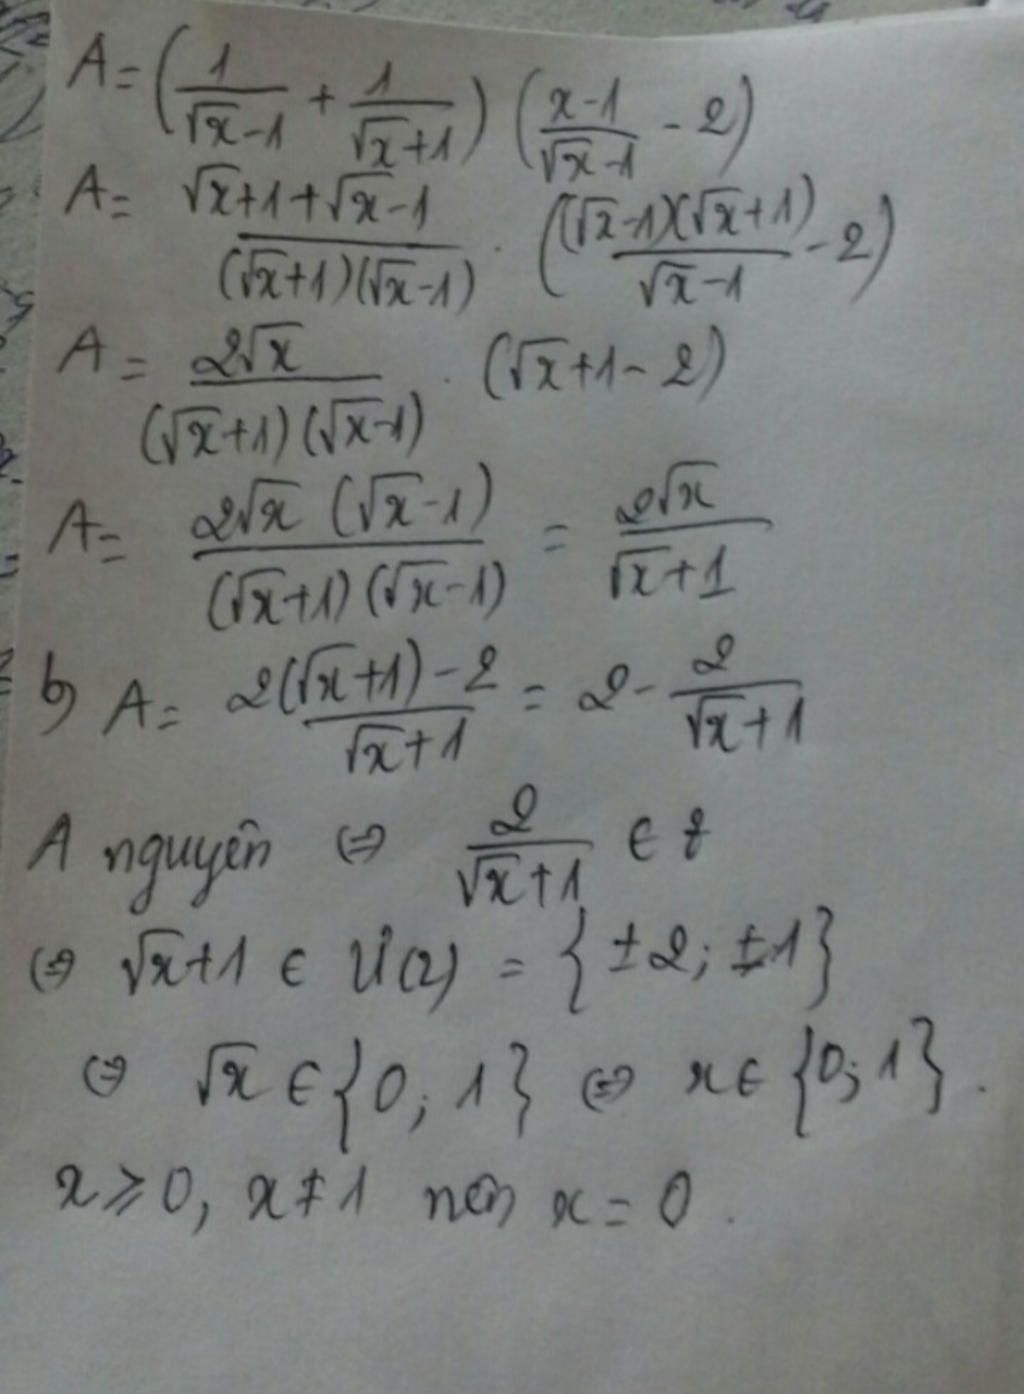 A = (1/(√x-1) + 1/(√x+1)) ((x-1)/(√x-1) - 2)
A = (√x+1+√x-1)/((√x+1)(√x-1)) · (((√x-1)(√x+1))/(√x-1) - 2)
A = 2√x/((√x+1)(√x-1)) · (√x+1-2)
A = (2√x (√x-1))/((√x+1)(√x-1)) = 2√x/(√x+1)
b) A = (2(√x+1)-2)/(√x+1) = 2 - 2/(√x+1)
A nguyên ⇔ 2/(√x+1) ∈ Z
⇔ √x+1 ∈ Ư(2) = {±2; ±1}
⇔ √x ∈ {0; 1} ⇔ x ∈ {0; 1}.
x ⩾ 0, x ≠ 1 nên x = 0.